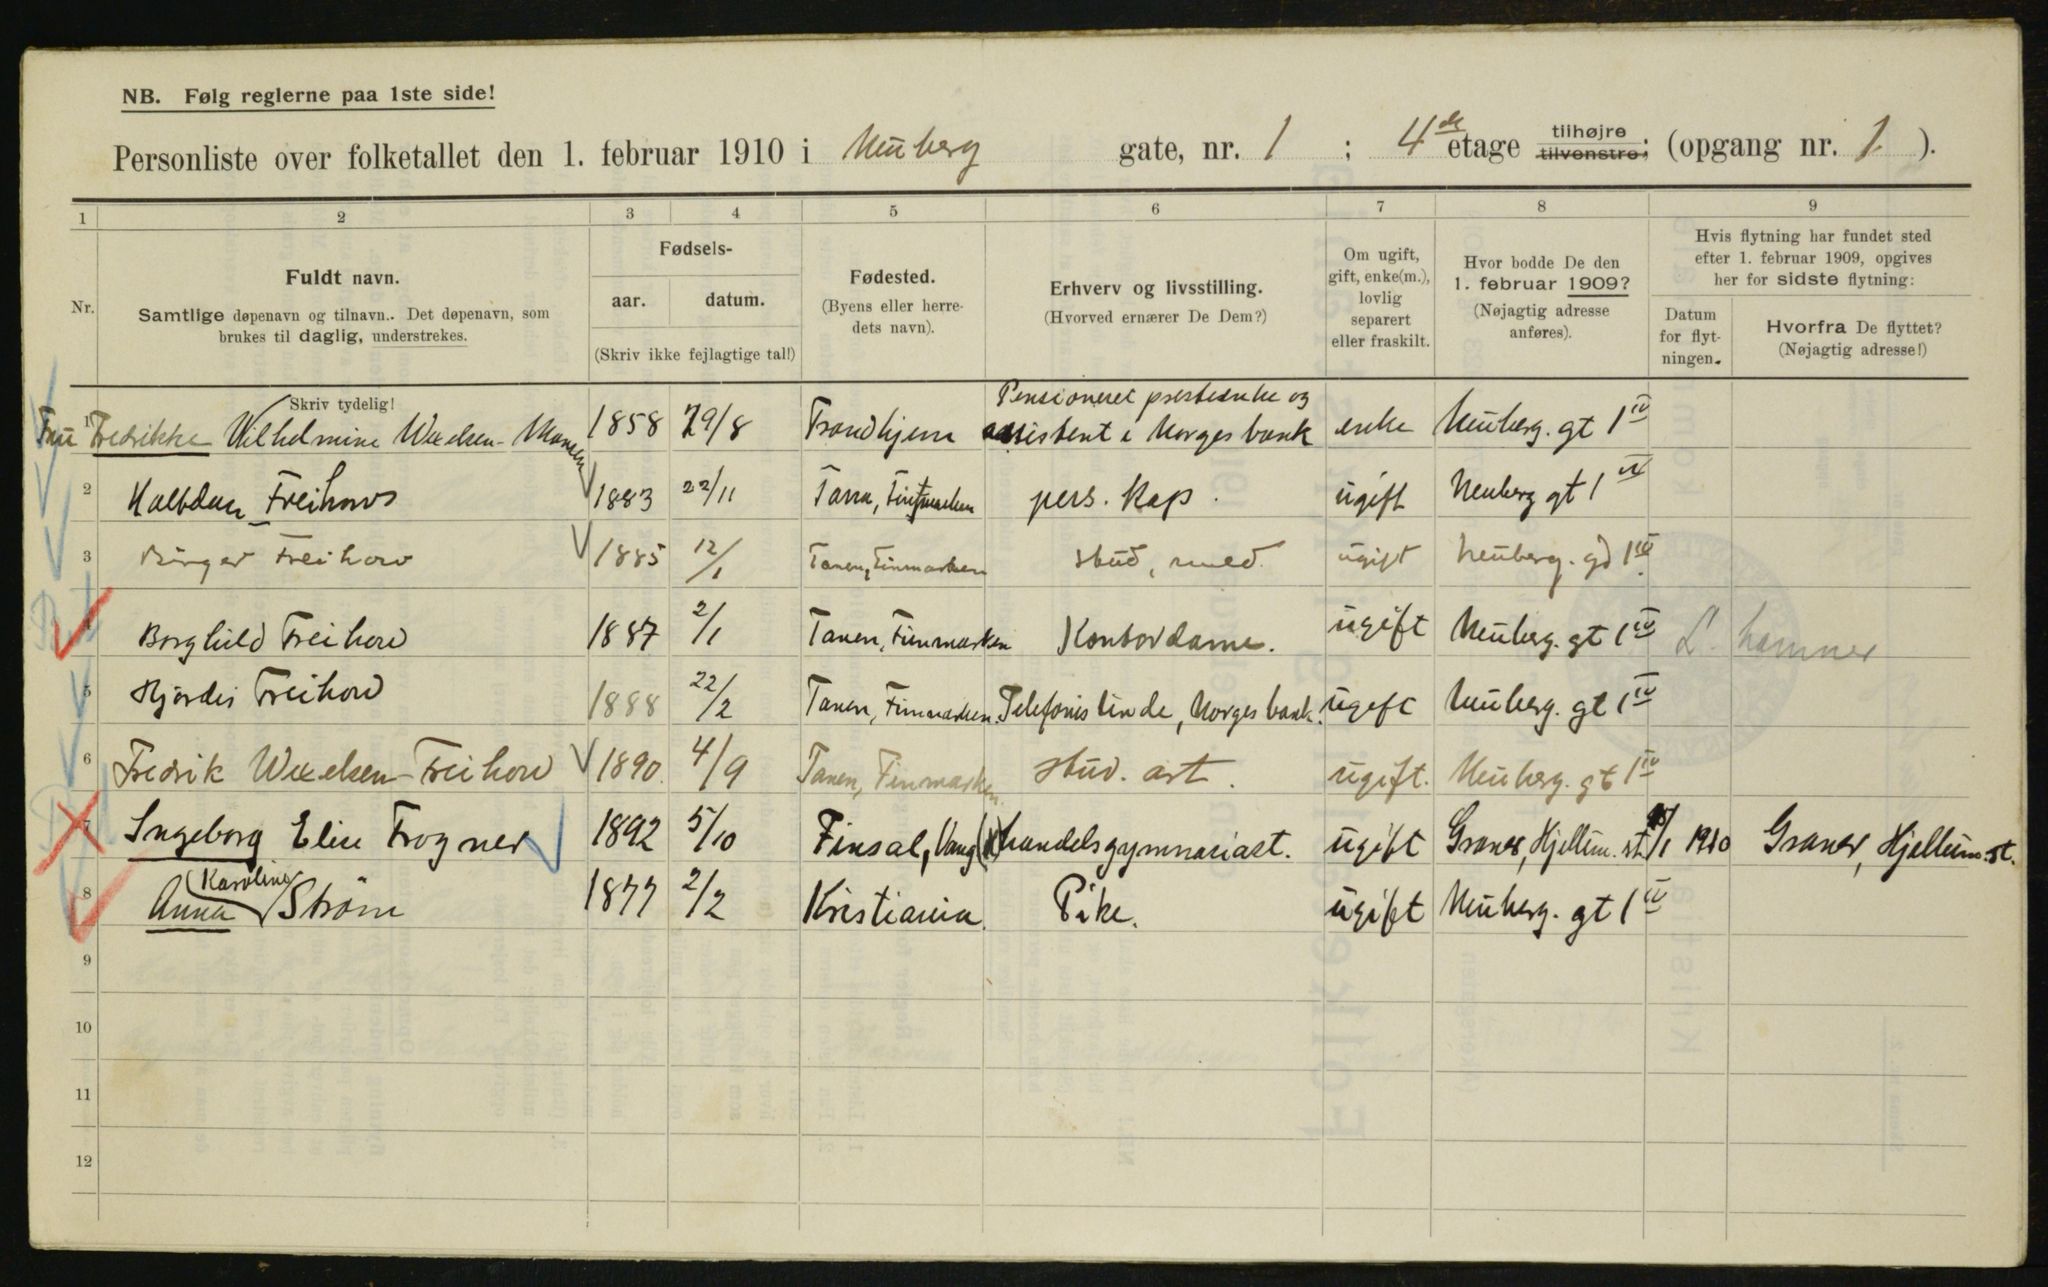 NB. Følg reglerne paa 1ste side!
Personliste over folketallet den 1. februar 1910 i Neuberg gate, nr. 1 ; 4de etage tilhøjre tilvenstre; (opgang nr. 1 ).
1 2 3 4 5 6 7 8 9
Nr.
Fuldt navn.
Samtlige døpenavn og tilnavn.. Det døpenavn, som
brukes til daglig, understrekes.
Skriv tydelig!
Fødsels-
aar. datum.
(Skriv ikke fejlagtige tal!)
Fødested.
(Byens eller herre-
dets navn).
Erhverv og livsstilling.
(Hvorved ernærer De Dem?)
Om ugift,
gift, enke(m.),
lovlig
separert
eller fraskilt.
Hvor bodde De den
1. februar 1909?
(Nøjagtig adresse
anføres).
Hvis flytning har fundet sted
efter 1. februar 1909, opgives
her for sidste flytning:
Datum
for flyt-
ningen.
Hvorfra De flyttet?
(Nøjagtig adresse!)
1 Fru Fredrikke Wilhelmine Wexelsen- 1858 29/8 Trondhjem Pensioneret presteenke og
assistent i Norges bank enke Neuberg. gt 1 IV
2 Halvdan Freihow 1883 22/11 Tana, Finmarken pers. kap. ugift Neuberg gt 1 IV
3 Birger Freihow 1885 12/1 Tanen, Finmarken stud, med. ugift Neuberg. gt 1 IV
4 Borghild Freihow 1887 2/1 Tanen, Finmarken Kontordame. ugift Neuberg. gt 1 IV L. hammer
5 Hjørdis Freihow 1888 22/2 Tanen, Finmarken. Telefonistinde, Norges bank. ugift Neuberg. gt 1 IV
6 Fredrik Wexelsen-Freihow 1890. 4/9 Tanen, Finmarken. stud. art. ugift. Neuberg. gt 1 IV
7 Ingeborg Elise Frogner 1892 5/10 Finsal, Vang handelsgymnasiast. ugift Graner, Hjellum. st. 1910 Graner, Hjellum. st.
8 Anna (Karoline) Strøm 1877 2/2 Kristiania. Pike. ugift Neuberg. gt 1 IV
9
10
11
12